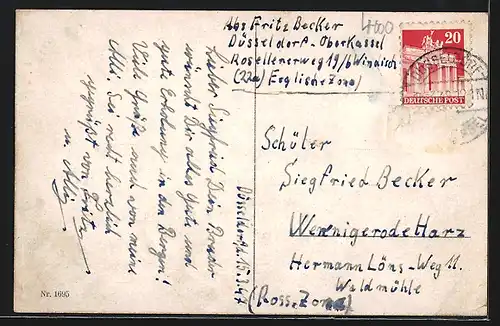 Abs Fritz Becker
Düsseldorf-Oberkassel
Rosellenerweg 19/b Winaisch
(22a) Englische Zone)
4000
20
DEUTSCHE POST
Lieber Siegfried Dein Bruder
wünscht Dir alles Gute und
gute Erholung in den Bergen!
Viele Grüße auch von meine
Alli. Sei recht herzlich
gegrüßt von Fritz
u. Alli
Düsseldorf, 15.3.49
Schüler
Siegfried Becker
Wernigerode Harz
Hermann Löns-Weg 11.
Waldmühle
(Russ. Zone)
Nr. 1695